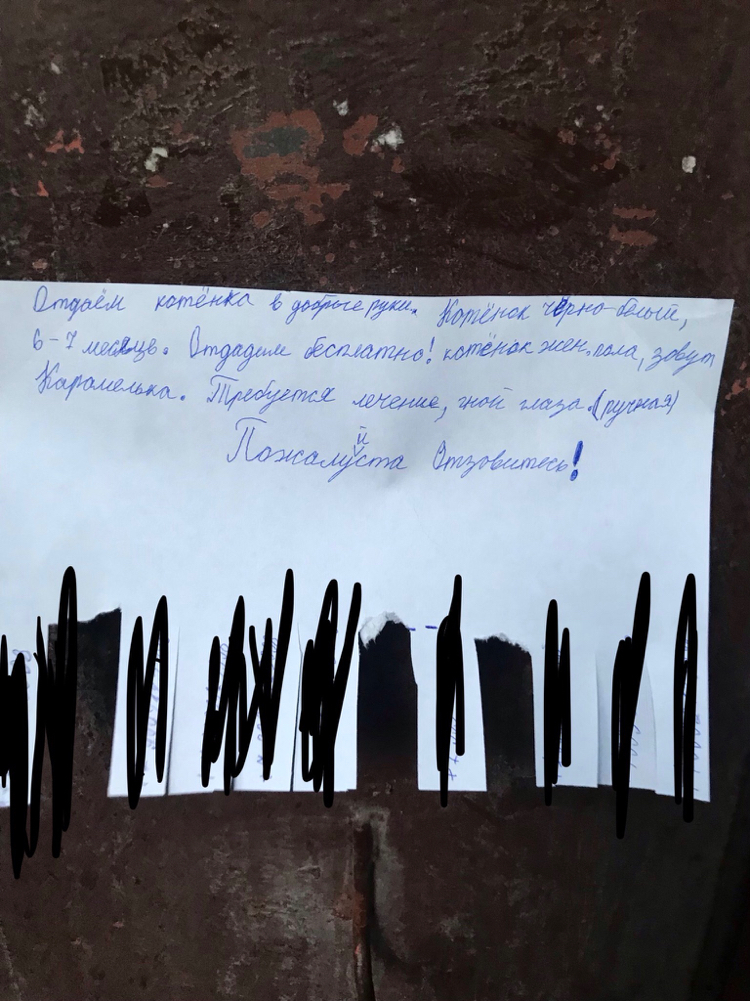 Отдаём котёнка в добрые руки. Котёнок чёрно-белый,
6-7 месяцв. Отдадим бесплатно! котёнок жен. пола, зовут
Карамелька. Требуется лечение, гной глаза. (ручная)
Пожалуйста Отзовитесь!